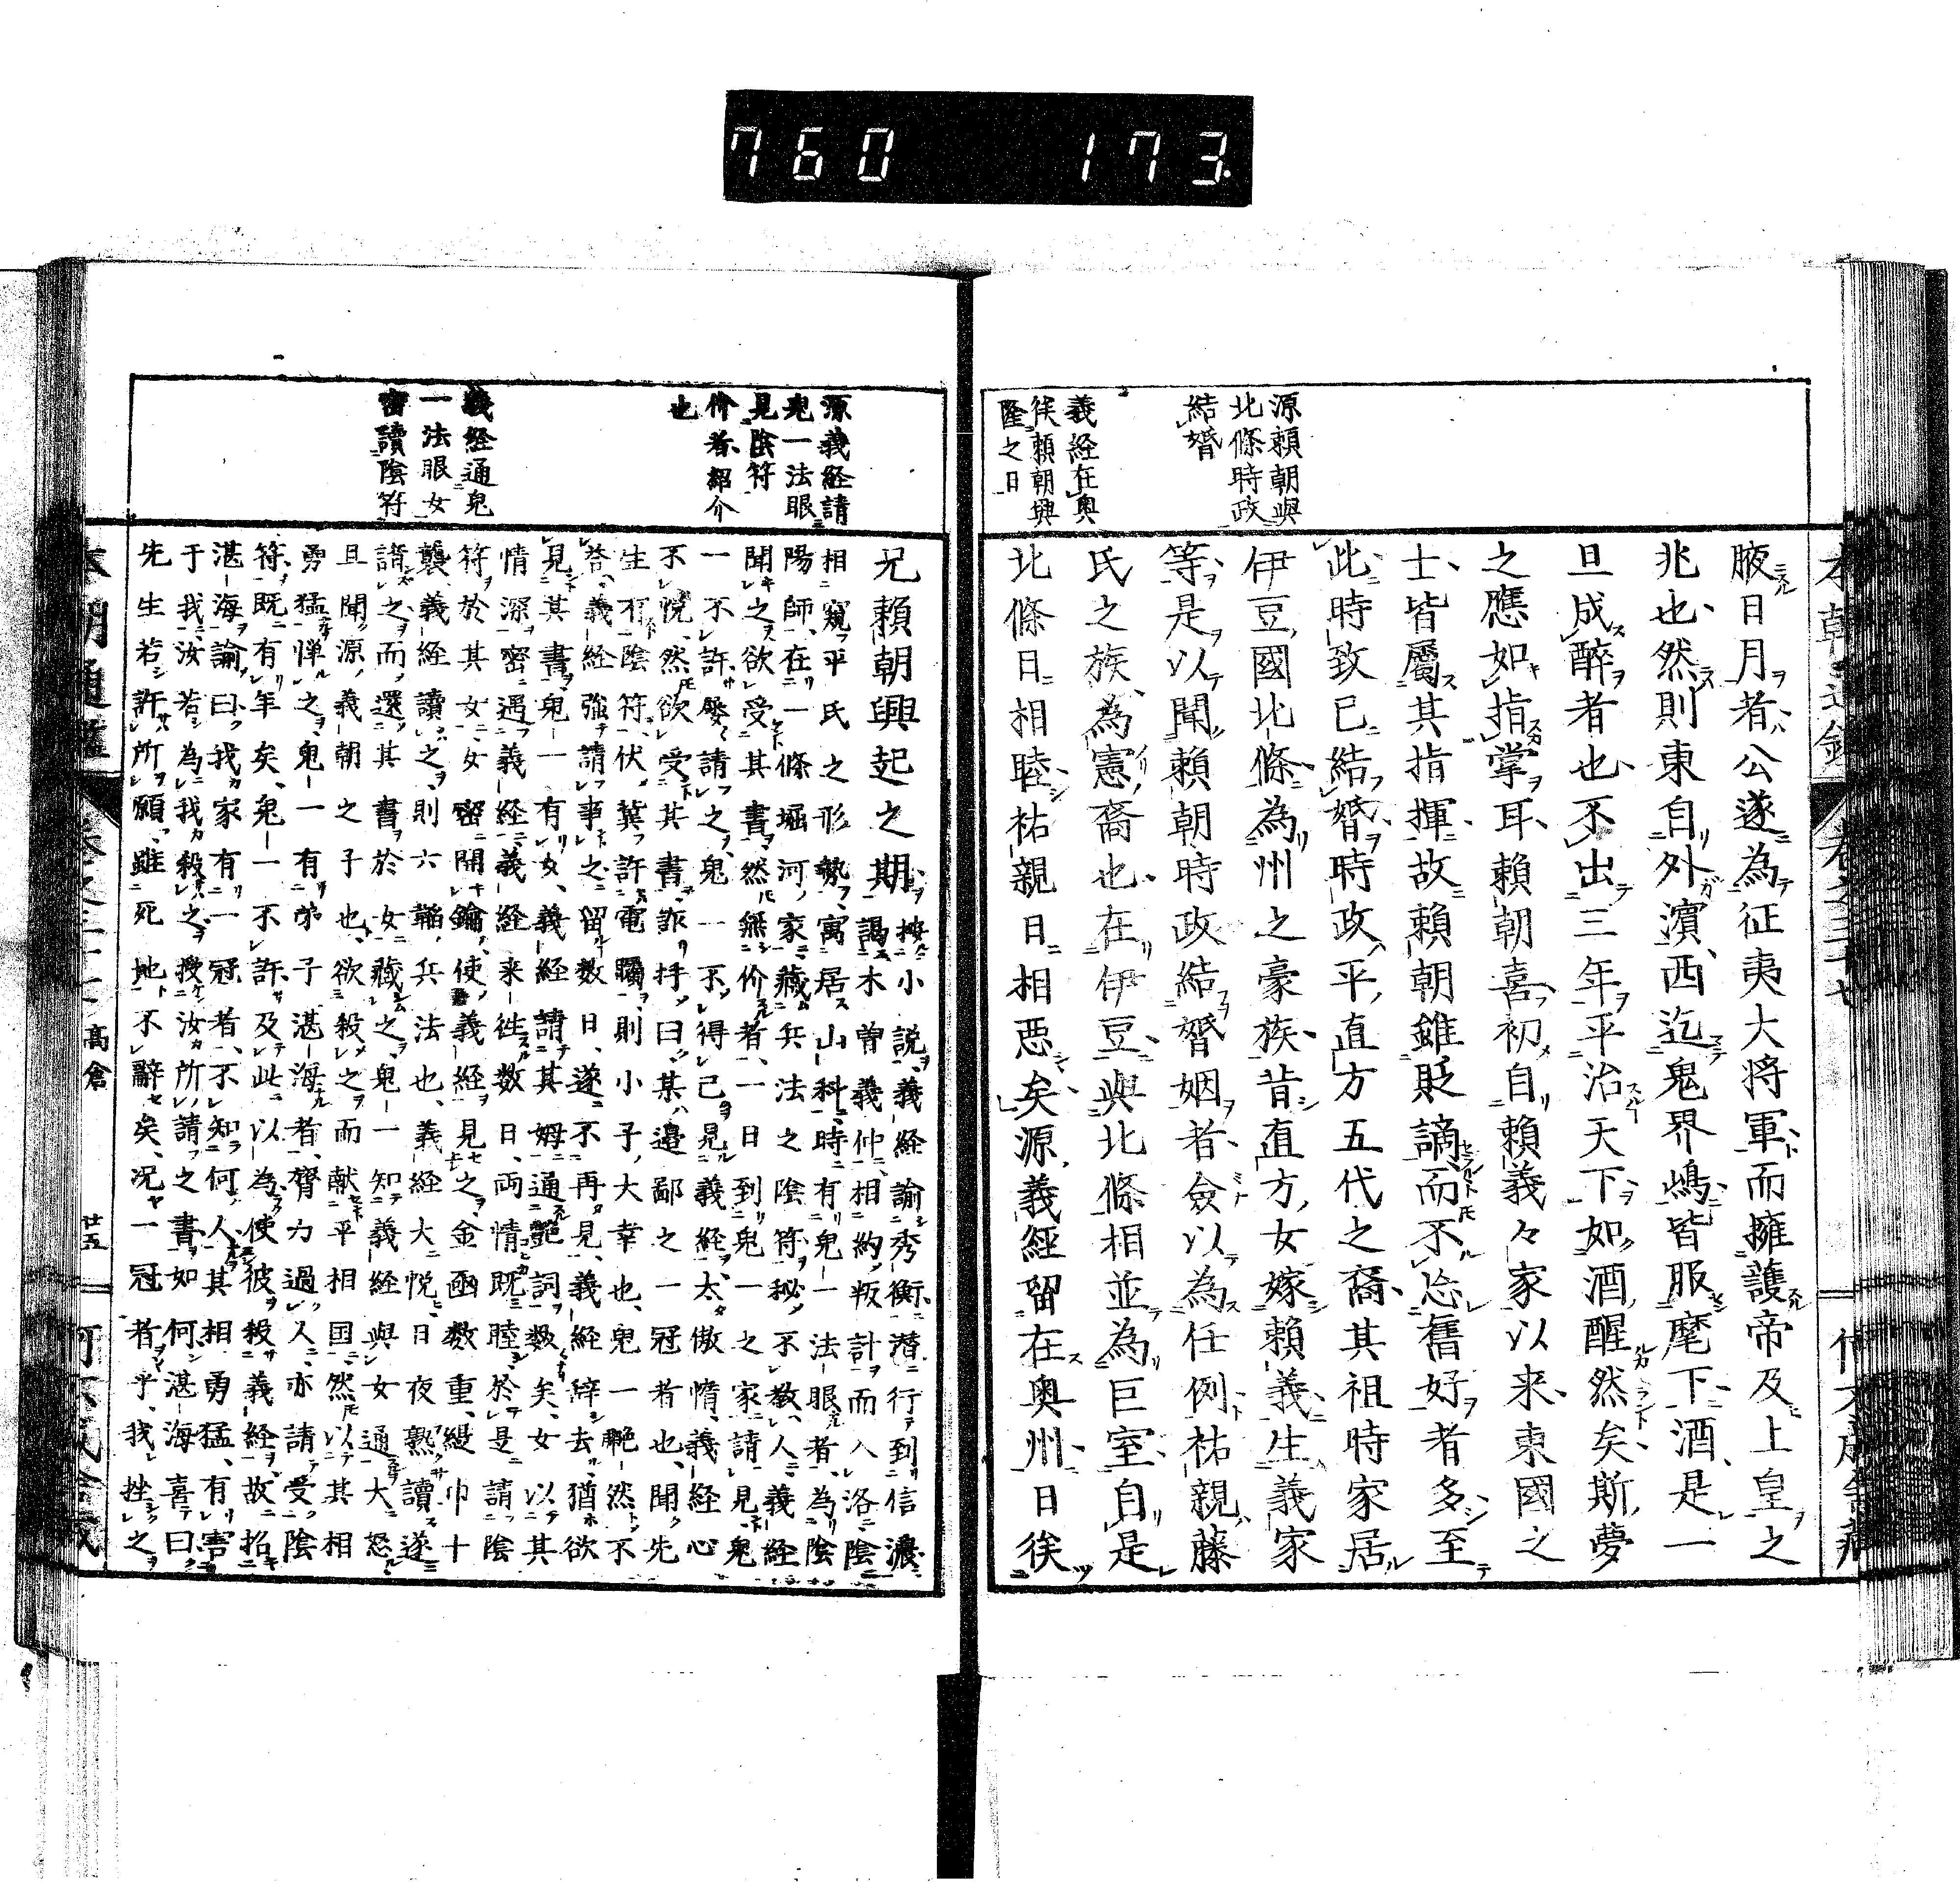 760 173
源頼朝與
北條時政
結婚
義経在奥
俟頼朝興
隆之日
腋日月者公遂為征夷大将軍而擁護帝及上皇之
兆也然則東自外濱西迄鬼界嶋皆服麾下酒是一
旦成醉者也不出三年平治天下如酒醒然矣斯夢
之應如指掌耳頼朝喜初自頼義々家以来東國之
士皆屬其指揮故頼朝雖貶謫而不忘舊好者多至
此時致已結婚時政平直方五代之裔其祖時家居
伊豆國北條為州之豪族昔直方女嫁頼義生義家
等是以聞頼朝時政結婿姻者僉以為任例祐親藤
氏之族為憲裔也在伊豆與北條相並為巨室自是
北條日相睦祐親日相惡矣源義經留在奥州日俟
源義経請
鬼一法眼
見陰符
价者紹介
也
義経通鬼
一法眼女
密讀陰符
兄頼朝興起之期
按小説義経諭秀衡潜行到信濃
謁木曽義仲相約叛計而入洛陰
相窺平氏之形勢寓居山科時有鬼一法眼者為陰
陽師在一條堀河家藏兵法之陰符秘不教人義経
聞之欲受其書然無价者一日到鬼一之家請見鬼
一不許發請之鬼一不得已見義経太傲惰義経心
不悦然欲受其書詐抒曰某邉鄙之一冠者也聞先
生有陰符伏冀許電矚則小子大幸也鬼一艴然不
答義経強請事之留数日遂不再見義経辞去猶欲
見其書鬼一有女義経請其姆通艶詞数矣女以其
情深密遇義経義経来往数日両情既睦於是請陰
符於其女女密開鑰使義経見之金凾数重縵巾十
襲義経讀之則六韜兵法也義経大悦日夜熟讀遂
請之而還其書於女藏之鬼一知義経與女通大怒
且聞源義朝之子也欲殺之而献平相国然以其相
勇猛憚之鬼一有弟子湛海者膂力過人亦請受陰
符既有年矣鬼一不許及此以為使彼殺義経故招
湛海諭曰我家有一冠者不知何人其相勇猛有害
于我汝若為我殺之授汝所請之書如何湛海喜曰
先生若許所願雖死地不辭矣况一冠者乎我挫之
高倉
廿五